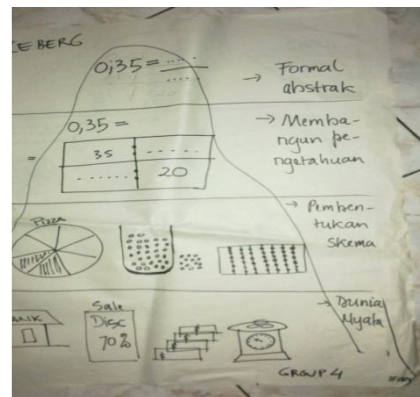 EBERG
0,35 = .....
.....
→ Formal
abstrak
0,35 =
→ Memba-
ngun pe-
ngetahuan
=
35 ......
...... 20
→ Pemben-
tukan
skema
Pizza
→ Dunia
Nyata
Sale
Disc
70%
GROUP 4